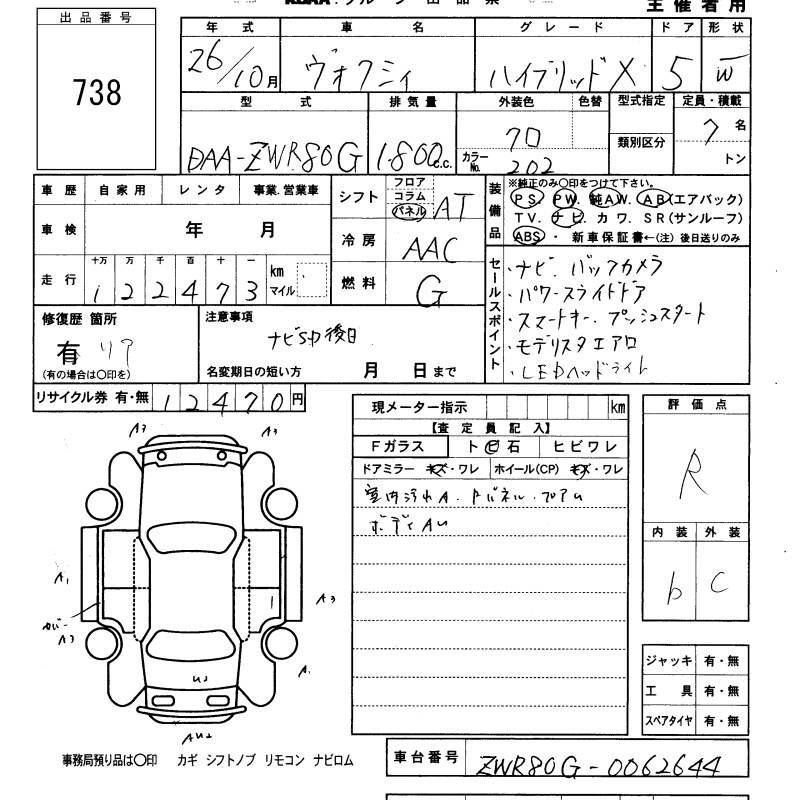 主催者用
出品番号
738
年式 車名 グレード ドア 形状
26/10月 ヴォクシィ ハイブリッドX 5 W
型式 排気量 外装色 色替 型式指定 定員・積載
DAA-ZWR80G 1.800c.c. クロ 類別区分 7名
カラーNo. 202 トン
車歴 自家用 レンタ 事業.営業車
車検 年 月
走行 十万 万 千 百 十 一 km マイル
122473
シフト フロア コラム パネル AT
冷房 AAC
燃料 G
装備品
※純正のみ〇印をつけて下さい。
PS. PW. 純AW. AB(エアバック)
TV. ナビ. カワ. SR(サンルーフ)
ABS ・ 新車保証書←(注) 後日送りのみ
セールスポイント
・ナビ. バックカメラ
・パワースライドドア
・スマートキー. プッシュスタート
・モデリスタエアロ
・LEDヘッドライト
修復歴 箇所
有 リア
(有の場合は〇印を)
注意事項
ナビSD後日
名変期日の短い方 月 日まで
リサイクル券 有・無 12470円
現メーター指示 km
【査定員記入】
Fガラス ト ビ 石 ヒビワレ
ドアミラー キズ・ワレ ホイール(CP) キズ・ワレ
室内汚れA. Dパネル.
ボディAU
評価点
R
内装 外装
b C
A3 A3
A1 A3
カバー
A3 A1
UJ
AU2
ジャッキ 有・無
工具 有・無
スペアタイヤ 有・無
事務局預り品は〇印 カギ シフトノブ リモコン ナビロム
車台番号 ZWR80G-0062644